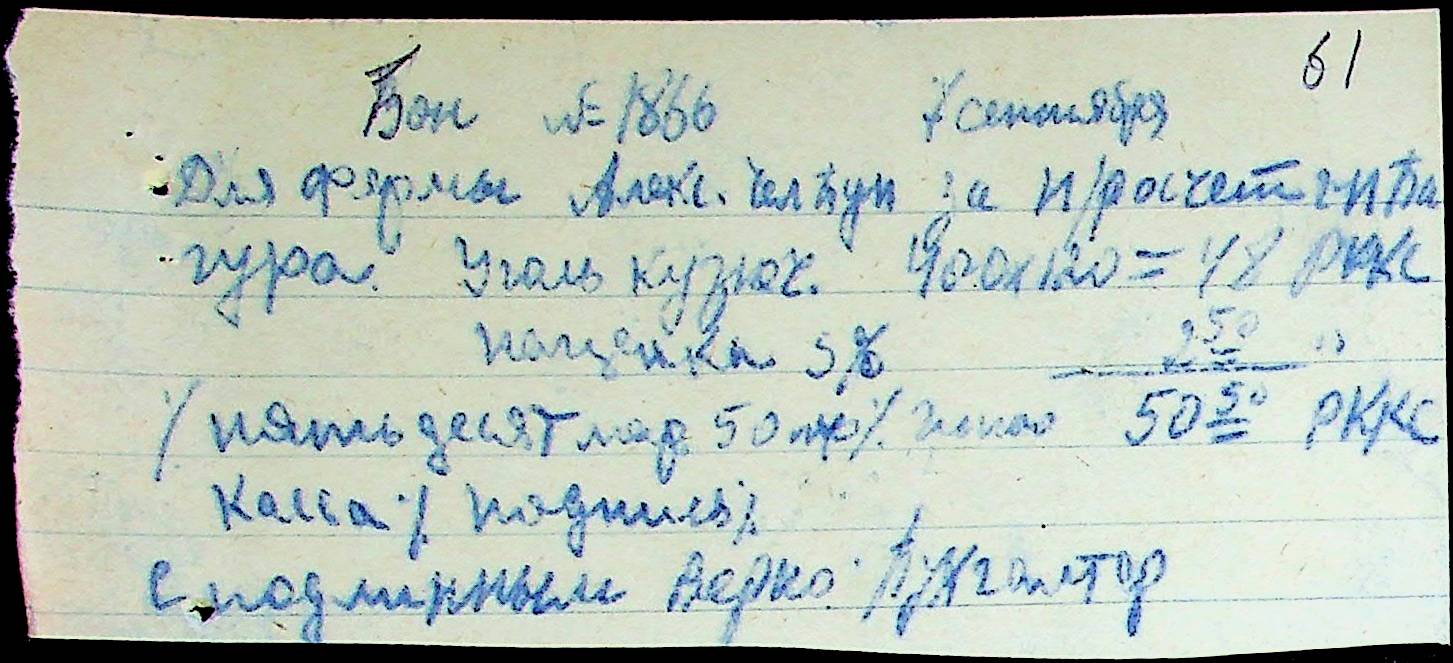 61
Бон № 1866 7 сентября
Для фермы Алекс. за н/расчет г-н Ба
гура. Уголь кузнеч. 400х120 = 48 РККС
наценка 5% 2 50 "
/ пятьдесят мар 50 / 50 50 РККС
Касса /подпись/
С подлинным верно: Бухгалтер